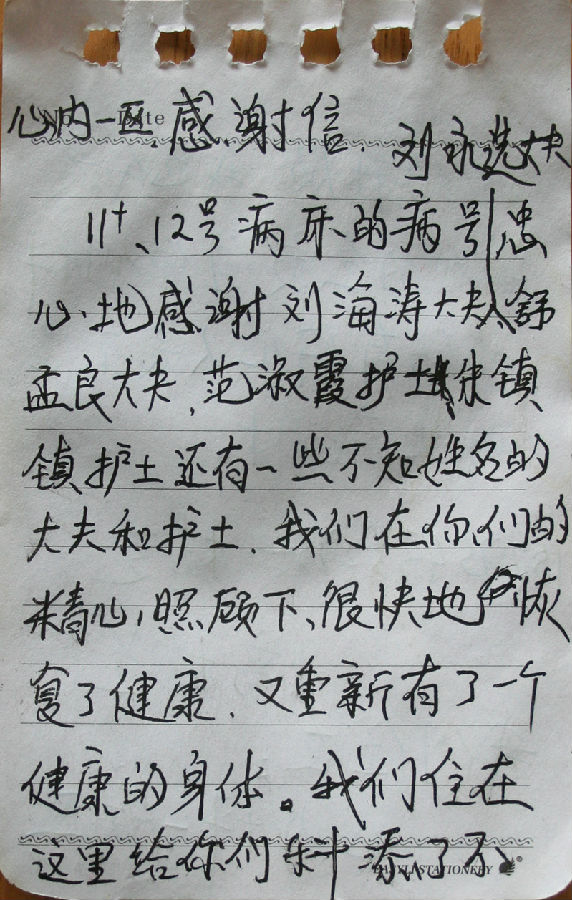 心内一区 感谢信. 刘永选大夫
11+、12号病床的病号忠
心地感谢刘海涛大夫、舒
孟良大夫,范淑霞护士,朱镇
镇护士还有一些不知姓名的
大夫和护士.我们在你们的
精心,照顾下、很快地恢
复了健康.又重新有了一个
健康的身体。我们住在
这里给你们科添了不
STATIONERY